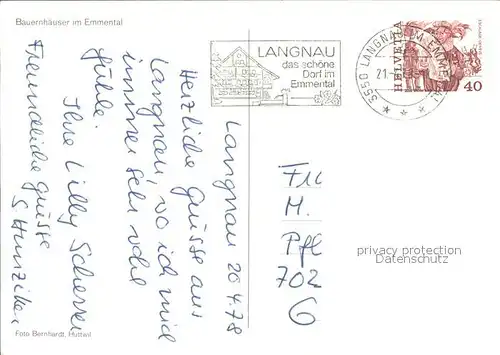 Bauernhäuser im Emmental
LANGNAU
das schöne
Dorf im
Emmental
3550 LANGNAU IM EMMENTAL
21.
HELVETIA
40
Langnau 20.4.78
Herzliche Grüsse aus
Langnau, wo ich mich
immer sehr wohl
fühle.
Ihre Lilly Scherrer
Freundliche Grüsse
S Hunziker
Foto Bernhardt, Huttwil
M.
Pfl
702
6
privacy protection
Datenschutz